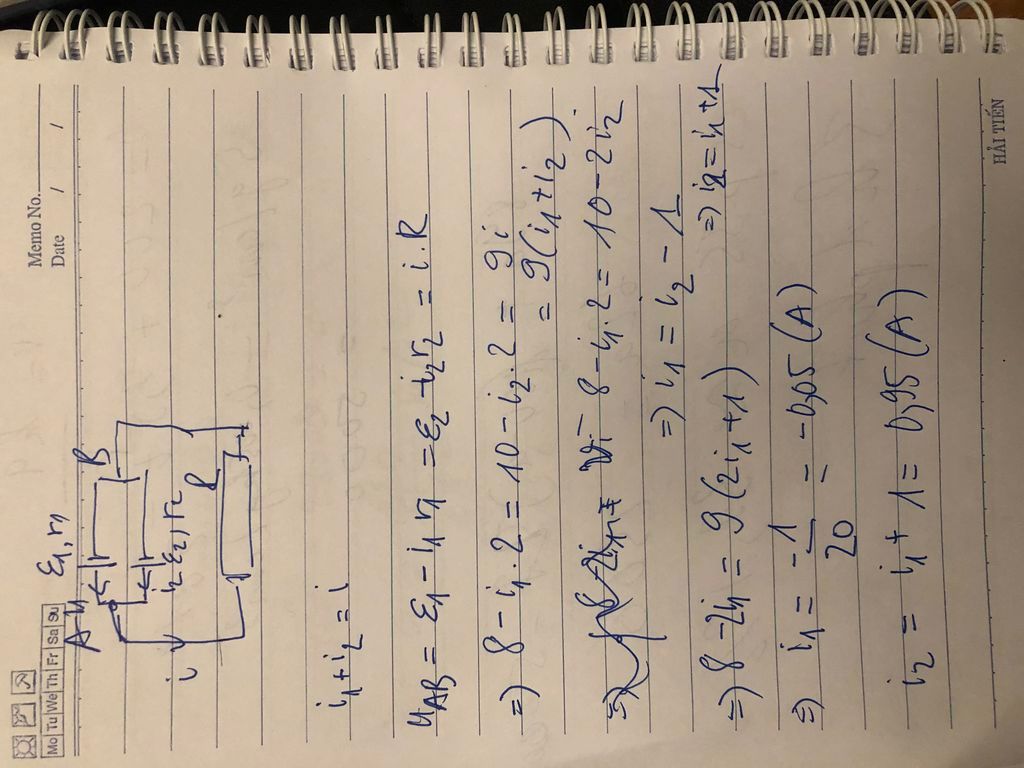 Memo No.
Mo Tu We Th Fr Sa Su
Date / /
A i₁ ε₁, r₁ B
i₂ ε₂, r₂
i R
i₁ + i₂ = i
u_AB = ε₁ - i₁r₁ = ε₂ - i₂r₂ = i.R
=) 8 - i₁.2 = 10 - i₂.2 = 9i
= 9(i₁+i₂)
=) 8 - i₁.2 = 10 - 2i₂
=) i₁ = i₂ - 1
=) i₂ = i₁ + 1
=) 8 - 2i₁ = 9(2i₁+1)
=) i₁ = -1/20 = -0,05 (A)
i₂ = i₁ + 1 = 0,95 (A)
HẢI TIẾN